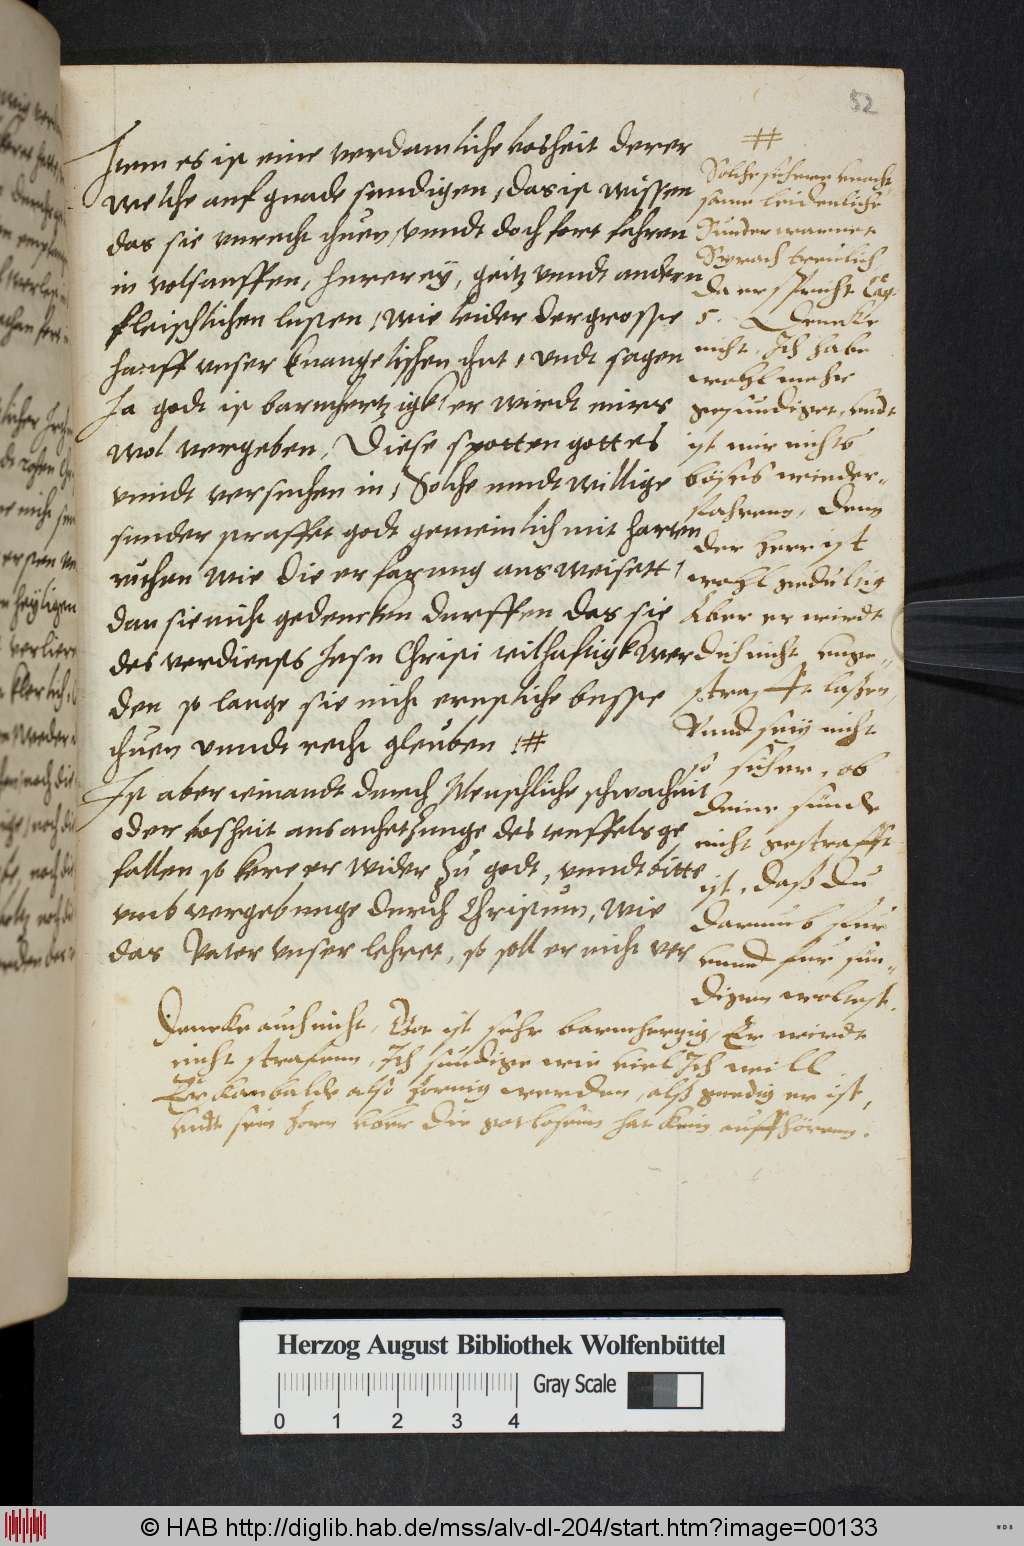 52
Item es ist eine verdamliche bosheit derer
welche auf gnade sundigen, das ist wissen
das sie unrecht thuen, unndt doch fort fahren
in volsauffen, hurerey, geitz unndt andern
fleischlichen lusten, wie leider der grosse
hauff unser Euangelischen thut, undt sagen
Ja godt ist barmhertzigk, er wirdt mirs
wol vergeben, Diese spotten gottes
unndt versuchen in, Solche mudtwillige
sunder straffet godt gemeinlich mit harten
ruthen wie die erfarung ausweisett,
dan sie nicht gedencken durffen das sie
des verdiensts Jesu Christi teilhaftigk wer
den so lange sie nicht ernstliche busse
thuen unndt recht gleuben ⌗
Ist aber iemandt durch Menschliche schwacheit
oder bosheit aus anhetzunge des teuffels ge
fallen so kere er wider zu godt, unndt bitte
umb vergebunge durch Christum, wie
das Vater unser lehret, so soll er nicht ver
⌗
Solche sichere
Sünder warnet
Syrach treulich
da er spricht Cap.
5. Dencke
nicht, Ich habe
wohl mehr
gesundiget, undt
ist mir nichts
böses wieder-
fahren, Denn
der Herr ist
wohl gedultig
Aber er wirdt
dich nicht unge-
strafft laßen,
Unnd sey nicht
so sicher, ob
deine sünde
nicht gestrafft
ist, daß du
darumb für
unnd für sün-
digen woltest.
Dencke auch nicht, Got ist sehr barmhertzig, Er wirdt
nicht strafenn, Ich sündige wie viel Ich will
Er kan balde also zornig werden, alß gnedig er ist,
undt sein Zorn uber die gotlosenn hat kein auffhörenn.
Herzog August Bibliothek Wolfenbüttel
Gray Scale
0 1 2 3 4
© HAB http://diglib.hab.de/mss/alv-dl-204/start.htm?image=00133